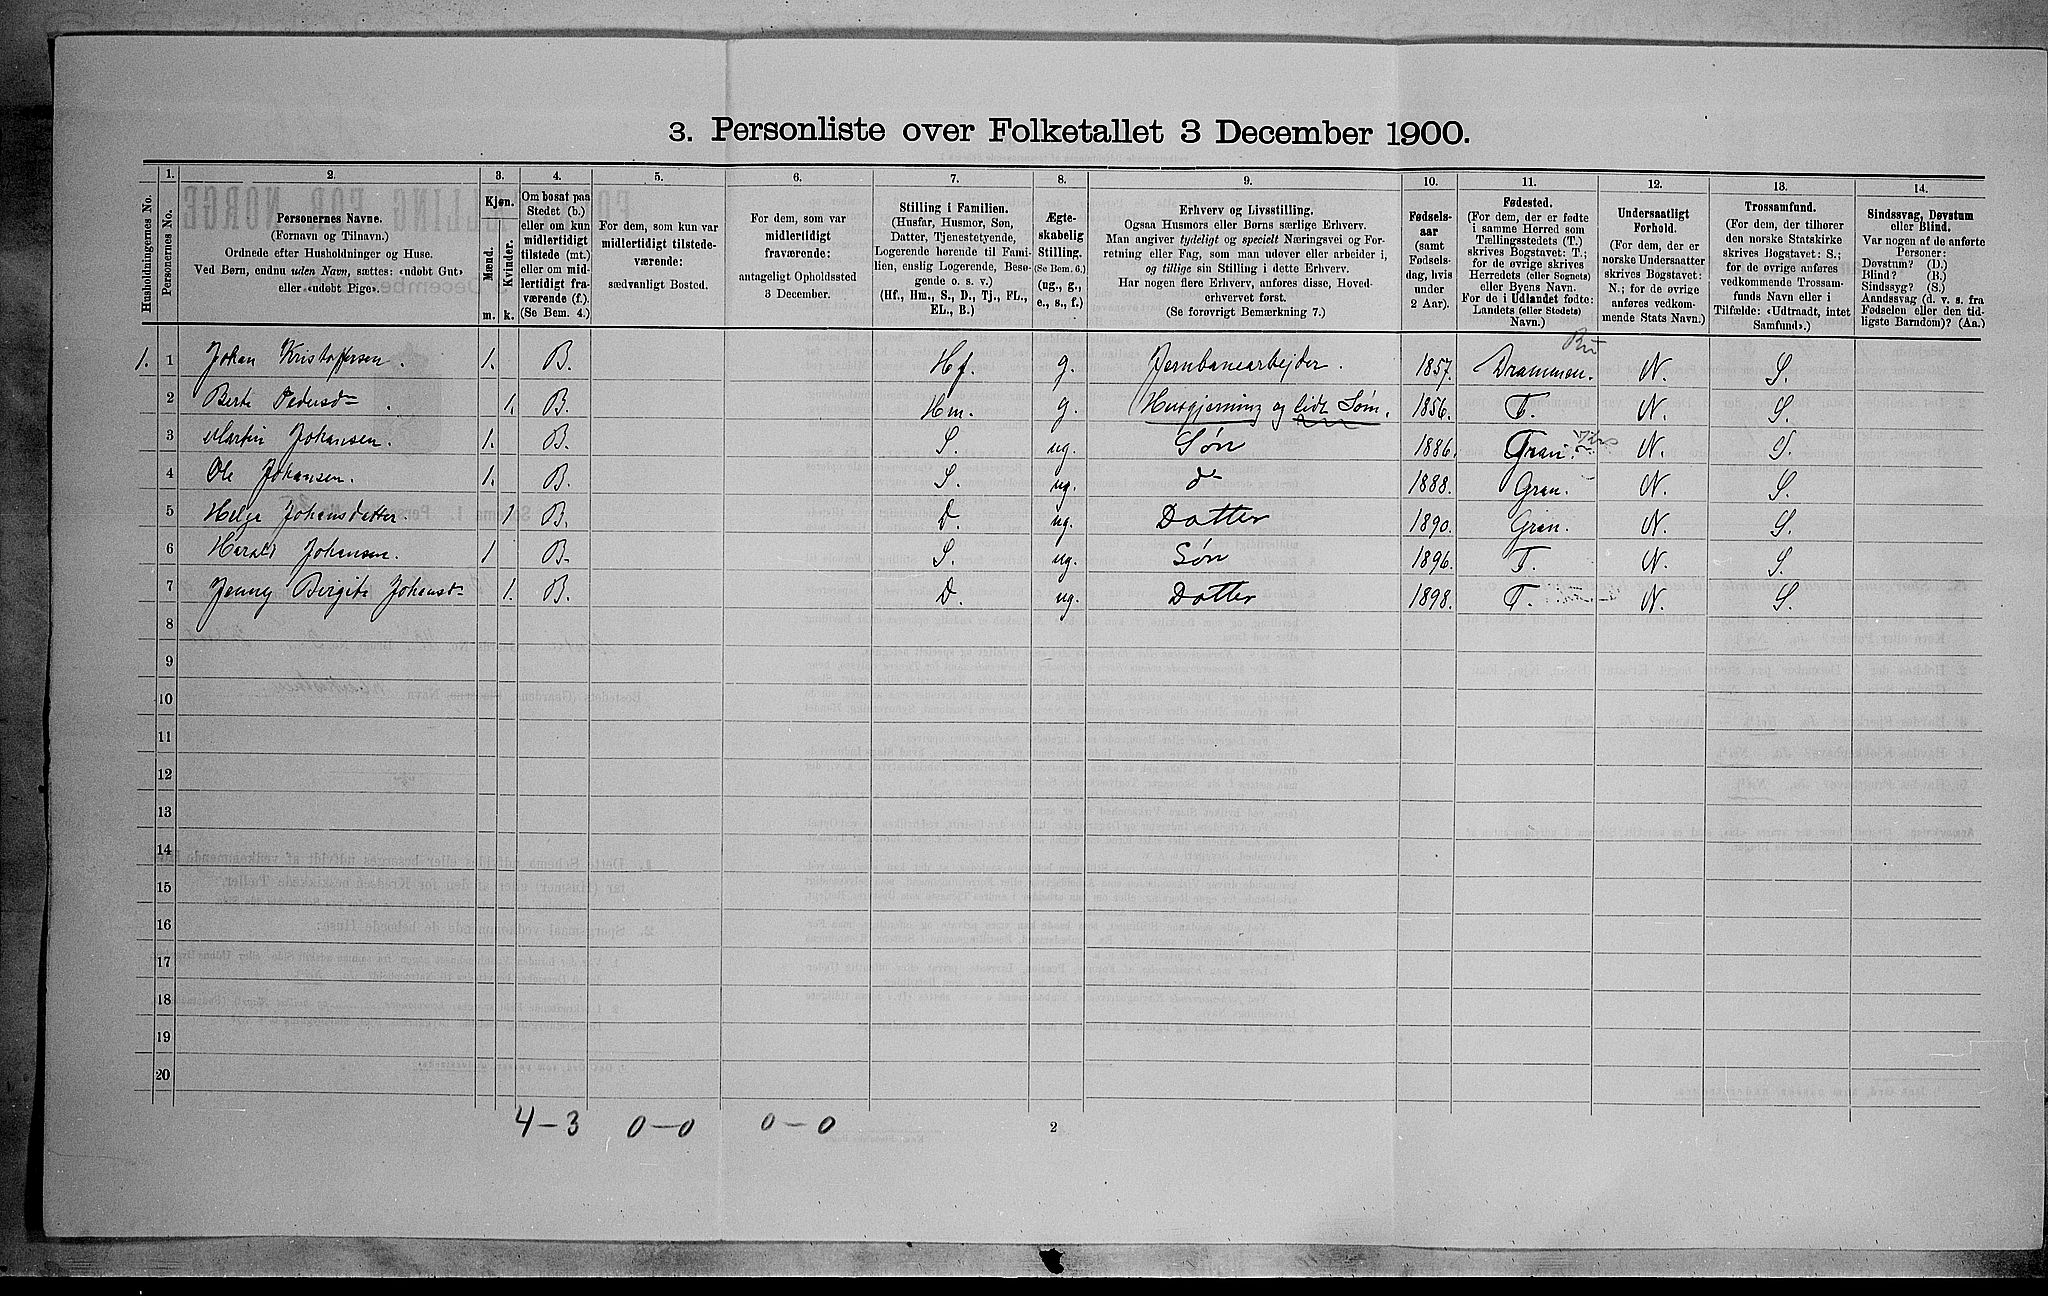 3. Personliste over Folketallet 3 December 1900.
Husholdningernes No.
1.
Personernes No.
2.
Personernes Navne.
(Fornavn og Tilnavn.)
Ordnede efter Husholdninger og Huse.
Ved Børn, endnu uden Navn, sættes: «udøbt Gut»
eller «udøbt Pige».
3.
Kjøn.
Mænd.
Kvinder.
m.
k.
4.
Om bosat paa
Stedet (b.)
eller om kun
midlertidigt
tilstede (mt.)
eller om mid-
lertidigt fra-
værende (f.).
(Se Bem. 4.)
5.
For dem, som kun var
midlertidigt tilstede-
værende:
sædvanligt Bosted.
6.
For dem, som var
midlertidigt
fraværende:
antageligt Opholdssted
3 December.
7.
Stilling i Familien.
(Husfar, Husmor, Søn,
Datter, Tjenestetyende,
Logerende hørende til Fami-
lien, enslig Logerende, Besø-
gende o. s. v.)
(Hf., Hm., S., D., Tj., FL.,
EL., B.)
8.
Ægte-
skabelig
Stilling.
(Se Bem. 6.)
(ug., g.,
e., s., f.)
9.
Erhverv og Livsstilling.
Ogsaa Husmors eller Børns særlige Erhverv.
Man angiver tydeligt og specielt Næringsvei og For-
retning eller Fag, som man udøver eller arbeider i,
og tillige sin Stilling i dette Erhverv.
Har nogen flere Erhverv, anføres disse, Hoved-
erhvervet først.
(Se forøvrigt Bemærkning 7.)
10.
Fødsels-
aar
(samt
Fødsels-
dag, hvis
under
2 Aar).
11.
Fødested.
(For dem, der er fødte
i samme Herred som
Tællingsstedets (T.)
skrives Bogstavet: T.;
for de øvrige skrives
Herredets (eller Sognets)
eller Byens Navn.
For de i Udlandet fødte:
Landets (eller Stedets)
Navn.)
12.
Undersaatligt
Forhold.
(For dem, der er
norske Undersaatter
skrives Bogstavet:
N.; for de øvrige
anføres vedkom-
mende Stats Navn.)
13.
Trossamfund.
(For dem, der tilhører
den norske Statskirke
skrives Bogstavet: S.;
for de øvrige anføres
vedkommende Trossam-
funds Navn eller i
Tilfælde: «Udtraadt, intet
Samfund».)
14.
Sindssvag, Døvstum
eller Blind.
Var nogen af de anførte
Personer:
Døvstum? (D.)
Blind? (B.)
Sindssyg? (S.)
Aandssvag (d. v. s. fra
Fødselen eller den tid-
ligste Barndom)? (Aa.)
1. 1 Johan Kristoffersen. 1. B. Hf. g. Jernbanearbejder. 1857. Drammen. N. S.
2 Berte Pedersd= 1. B. Hm. g. Husgjerning og lidt Søm. 1856. T. N. S.
3 Martin Johansen. 1. B. S. ug. Søn 1886. Gran. N. S.
4 Ole Johansen. 1. B. S. ug. d= 1888. Gran. N. S.
5 Helga Johansdatter. 1 B. D. ug. Datter 1890. Gran. N. S.
6 Harald Johansen. 1 B. S. ug. Søn 1896. T. N. S.
7 Jenny Birgite Johansd= 1. B. D. ug. Datter 1898. T. N. S.
8
9
10
11
12
13
14
15
16
17
18
19
20
4-3 0-0 0-0
2